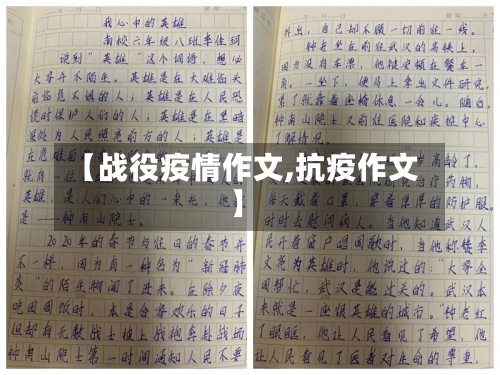 我心中的英雄
南校六年级八班李佳珂
说到“英雄”这个词语,想必
大家并不陌生。英雄是在大难临头
前临危不惧的人;英雄是在人民恐
慌时保护人们的人;英雄是在黑暗
深处为人民照亮前方的人;英雄是
在危难
就是一位
英雄,是人们心中的一束光,他
是——钟南山院士。
2020年的春节与往日的春节并
不一样,因为有一种名为“新冠肺
炎”的陌生物闯了进来。在除夕夜
吃团圆饭时,本是合家欢乐的日子
但却有无数战士披上战袍奔赴战场
钟南山院士第一时间通知人民不要
外出,自己却不顾一切前往一线。
钟老坐在前往武汉的高铁上,
因为没有车票,他被安顿在餐车一
角。一坐下,便马上拿出文件研究,
累了就靠着座椅休息一会儿。随后,
钟南山院士又前往医院和疾控中心
了解情况。
高龄了,
疗药物,
每天戴着口罩,穿着厚厚的防护服,
时时去慰问病人。当他知道武汉人
民开着窗户唱国歌时,当他称赞李
文亮为英雄时,他说过的:“大家全
国帮忙,武汉是能过关的。武汉本
来就是一座很英雄的城市。”钟老红
了眼眶,他让人民看见了希望,他
让人民看见了医者对生命的尊重,
【战役疫情作文,抗疫作文
】